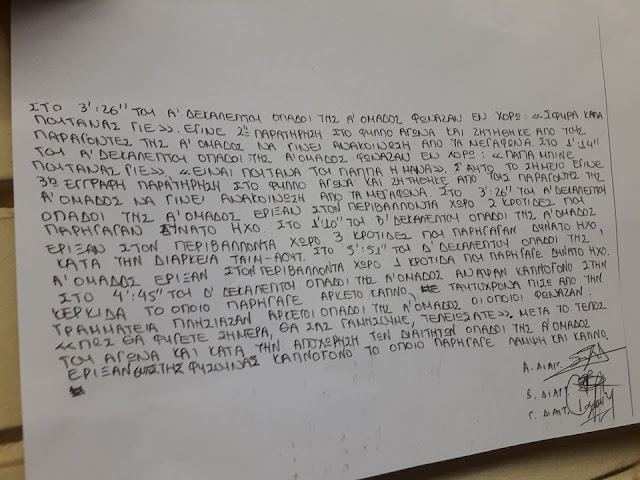 ΣΤΟ 3':26'' ΤΟΥ Α' ΔΕΚΑΛΕΠΤΟΥ ΟΠΑΔΟΙ ΤΗΣ Α' ΟΜΑΔΟΣ ΦΩΝΑΖΑΝ ΕΝ ΧΟΡΩ: «ΣΦΥΡΑ ΚΑΠΑ
ΠΟΥΤΑΝΑΣ ΓΙΕ». ΕΓΙΝΕ 2η ΠΑΡΑΤΗΡΗΣΗ ΣΤΟ ΦΥΛΛΟ ΑΓΩΝΑ ΚΑΙ ΖΗΤΗΘΗΚΕ ΑΠΟ ΤΟΥΣ
ΠΑΡΑΓΟΝΤΕΣ ΤΗΣ Α' ΟΜΑΔΟΣ ΝΑ ΓΙΝΕΙ ΑΝΑΚΟΙΝΩΣΗ ΑΠΟ ΤΑ ΜΕΓΑΦΩΝΑ. ΣΤΟ 1':14''
ΤΟΥ Α' ΔΕΚΑΛΕΠΤΟΥ ΟΠΑΔΟΙ ΤΗΣ Α' ΟΜΑΔΟΣ ΦΩΝΑΖΑΝ ΕΝ ΧΟΡΩ: «ΠΑΠΑ
ΠΟΥΤΑΝΑΣ ΓΙΕ», «ΕΙΝΑΙ ΠΟΥΤΑΝΑ ΤΟΥ ΠΑΠΠΑ Η ΜΑΝΑ». Σ' ΑΥΤΟ ΤΟ ΣΗΜΕΙΟ ΕΓΙΝΕ
3η ΕΓΓΡΑΦΗ ΠΑΡΑΤΗΡΗΣΗ ΣΤΟ ΦΥΛΛΟ ΑΓΩΝΑ ΚΑΙ ΖΗΤΗΘΗΚΕ ΑΠΟ ΤΟΥΣ ΠΑΡΑΓΟΝΤΕΣ ΤΗΣ
Α' ΟΜΑΔΟΣ ΝΑ ΓΙΝΕΙ ΑΝΑΚΟΙΝΩΣΗ ΑΠΟ ΤΑ ΜΕΓΑΦΩΝΑ. ΣΤΟ 3':26'' ΤΟΥ Α' ΔΕΚΑΛΕΠΤΟΥ
ΟΠΑΔΟΙ ΤΗΣ Α' ΟΜΑΔΟΣ ΕΡΙΞΑΝ ΣΤΟΝ ΠΕΡΙΒΑΛΛΟΝΤΑ ΧΩΡΟ 2 ΚΡΟΤΙΔΕΣ ΠΟΥ
ΠΑΡΗΓΑΓΑΝ ΔΥΝΑΤΟ ΗΧΟ. ΣΤΟ 1':10'' ΤΟΥ Β' ΔΕΚΑΛΕΠΤΟΥ ΟΠΑΔΟΙ ΤΗΣ Α' ΟΜΑΔΟΣ
ΕΡΙΞΑΝ ΣΤΟΝ ΠΕΡΙΒΑΛΛΟΝΤΑ ΧΩΡΟ 3 ΚΡΟΤΙΔΕΣ ΠΟΥ ΠΑΡΗΓΑΓΑΝ ΔΥΝΑΤΟ ΗΧΟ,
ΚΑΤΑ ΤΗΝ ΔΙΑΡΚΕΙΑ ΤΑΙΜ-ΑΟΥΤ. ΣΤΟ 5':51'' ΤΟΥ Δ' ΔΕΚΑΛΕΠΤΟΥ ΟΠΑΔΟΙ ΤΗΣ
Α' ΟΜΑΔΟΣ ΕΡΙΞΑΝ ΣΤΟΝ ΠΕΡΙΒΑΛΛΟΝΤΑ ΧΩΡΟ 1 ΚΡΟΤΙΔΑ ΠΟΥ ΠΑΡΗΓΑΓΕ ΔΥΝΑΤΟ ΗΧΟ.
ΣΤΟ 4':45'' ΤΟΥ Δ' ΔΕΚΑΛΕΠΤΟΥ ΟΠΑΔΟΙ ΤΗΣ Α' ΟΜΑΔΟΣ ΑΝΑΨΑΝ ΚΑΠΝΟΓΟΝΟ ΣΤΗΝ
ΚΕΡΚΙΔΑ ΤΟ ΟΠΟΙΟ ΠΑΡΗΓΑΓΕ ΑΡΚΕΤΟ ΚΑΠΝΟ. ΤΑΥΤΟΧΡΟΝΑ ΠΙΣΩ ΑΠΟ ΤΗΝ
ΓΡΑΜΜΑΤΕΙΑ ΠΛΗΣΙΑΣΑΝ ΑΡΚΕΤΟΙ ΟΠΑΔΟΙ ΤΗΣ Α' ΟΜΑΔΟΣ ΟΙ ΟΠΟΙΟΙ ΦΩΝΑΖΑΝ
«ΠΩΣ ΘΑ ΦΥΓΕΤΕ ΣΗΜΕΡΑ, ΘΑ ΣΑΣ ΓΑΜΗΣΟΥΜΕ, ΤΕΛΕΙΩΣΑΤΕ». ΜΕΤΑ ΤΟ ΤΕΛΟΣ
ΤΟΥ ΑΓΩΝΑ ΚΑΙ ΚΑΤΑ ΤΗΝ ΑΠΟΧΩΡΗΣΗ ΤΩΝ ΔΙΑΙΤΗΤΩΝ ΟΠΑΔΟΙ ΤΗΣ Α' ΟΜΑΔΟΣ
ΕΡΙΞΑΝ ΤΗΣ ΦΥΣΟΥΝΑΣ ΚΑΠΝΟΓΟΝΟ ΤΟ ΟΠΟΙΟ ΠΑΡΗΓΑΓΕ ΛΑΜΨΗ ΚΑΙ ΚΑΠΝΟ.
Α. ΔΙΑΙΤ.
Β. ΔΙΑΙΤ.
Γ. ΔΙΑΙΤ.